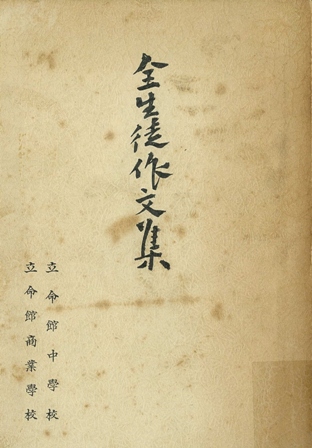 全生徒作文集
立命館中學校
立命館商業學校